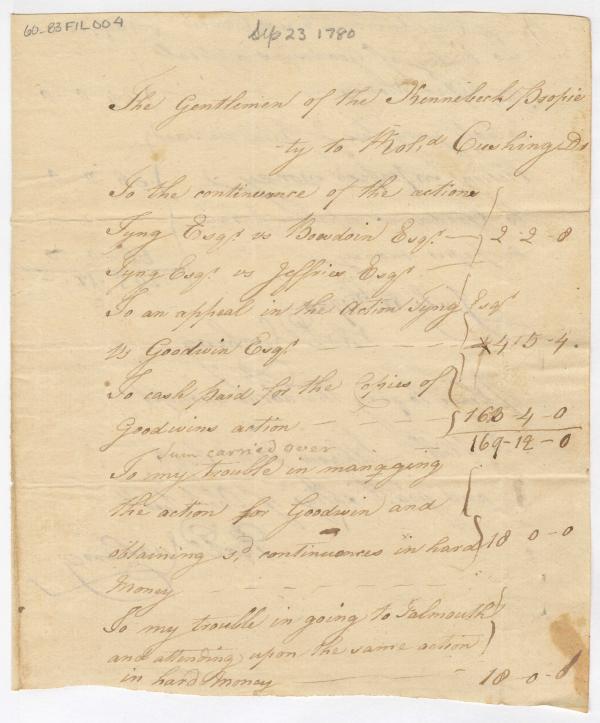 60-83FIL004
Sep 23 1780
The Gentlemen of the Kennebeck Propie
ty to Rol,d Cushing Dr
To the continuance of the actions
Tyng Esqr vs Bowdoin Esqr — 2-2-8
Tyng Esqr vs Jeffries Esqr —
To an appeal in the Action Tyng Esqr
vs Goodwin Esqr — — — — 4-15-4.
To cash paid for the Copies of
Goodwins action — — — — 163-4-0
Sum carried over 169-12-0
To my trouble in managging
the action for Goodwin and
obtaining sd continuances in hard 18 0-0
Money — — — — —
To my trouble in going to Falmouth
and attending upon the same action
in hard Money — — 18-0-0